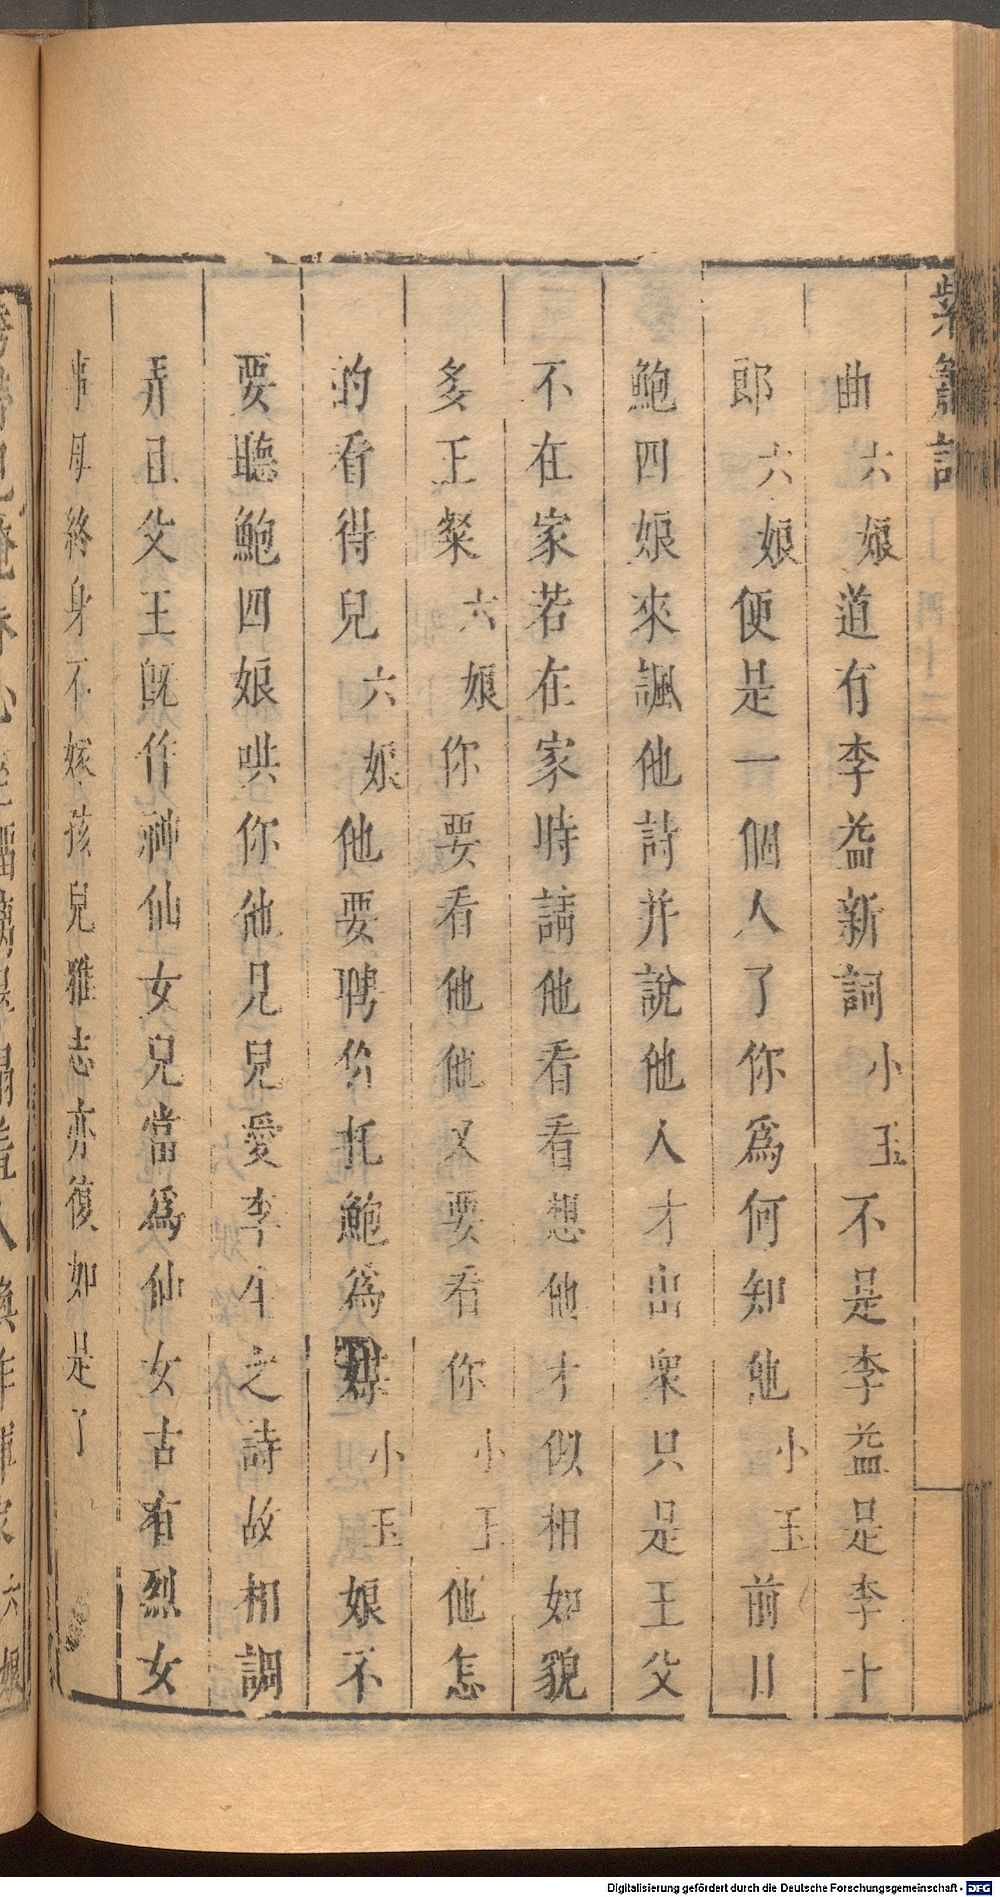 紫簫記
曲六娘道有李益新詞小玉不是李益是李十
郎六娘便是一個人了你爲何知他小玉前日
鮑四娘來諷他詩并說他人才出衆只是王父
不在家若在家時請他看看想他才似相如貌
多王粲六娘你要看他他又要看你小玉他怎
的看得兒六娘他要聘你托鮑爲媒小玉娘不
要聽鮑四娘哄你他見兒愛李生之詩故相調
弄且父王旣作神仙女兒當爲仙女古有烈女
事母終身不嫁孩兒雅志亦復如是了
Digitalisierung gefördert durch die Deutsche Forschungsgemeinschaft - DFG